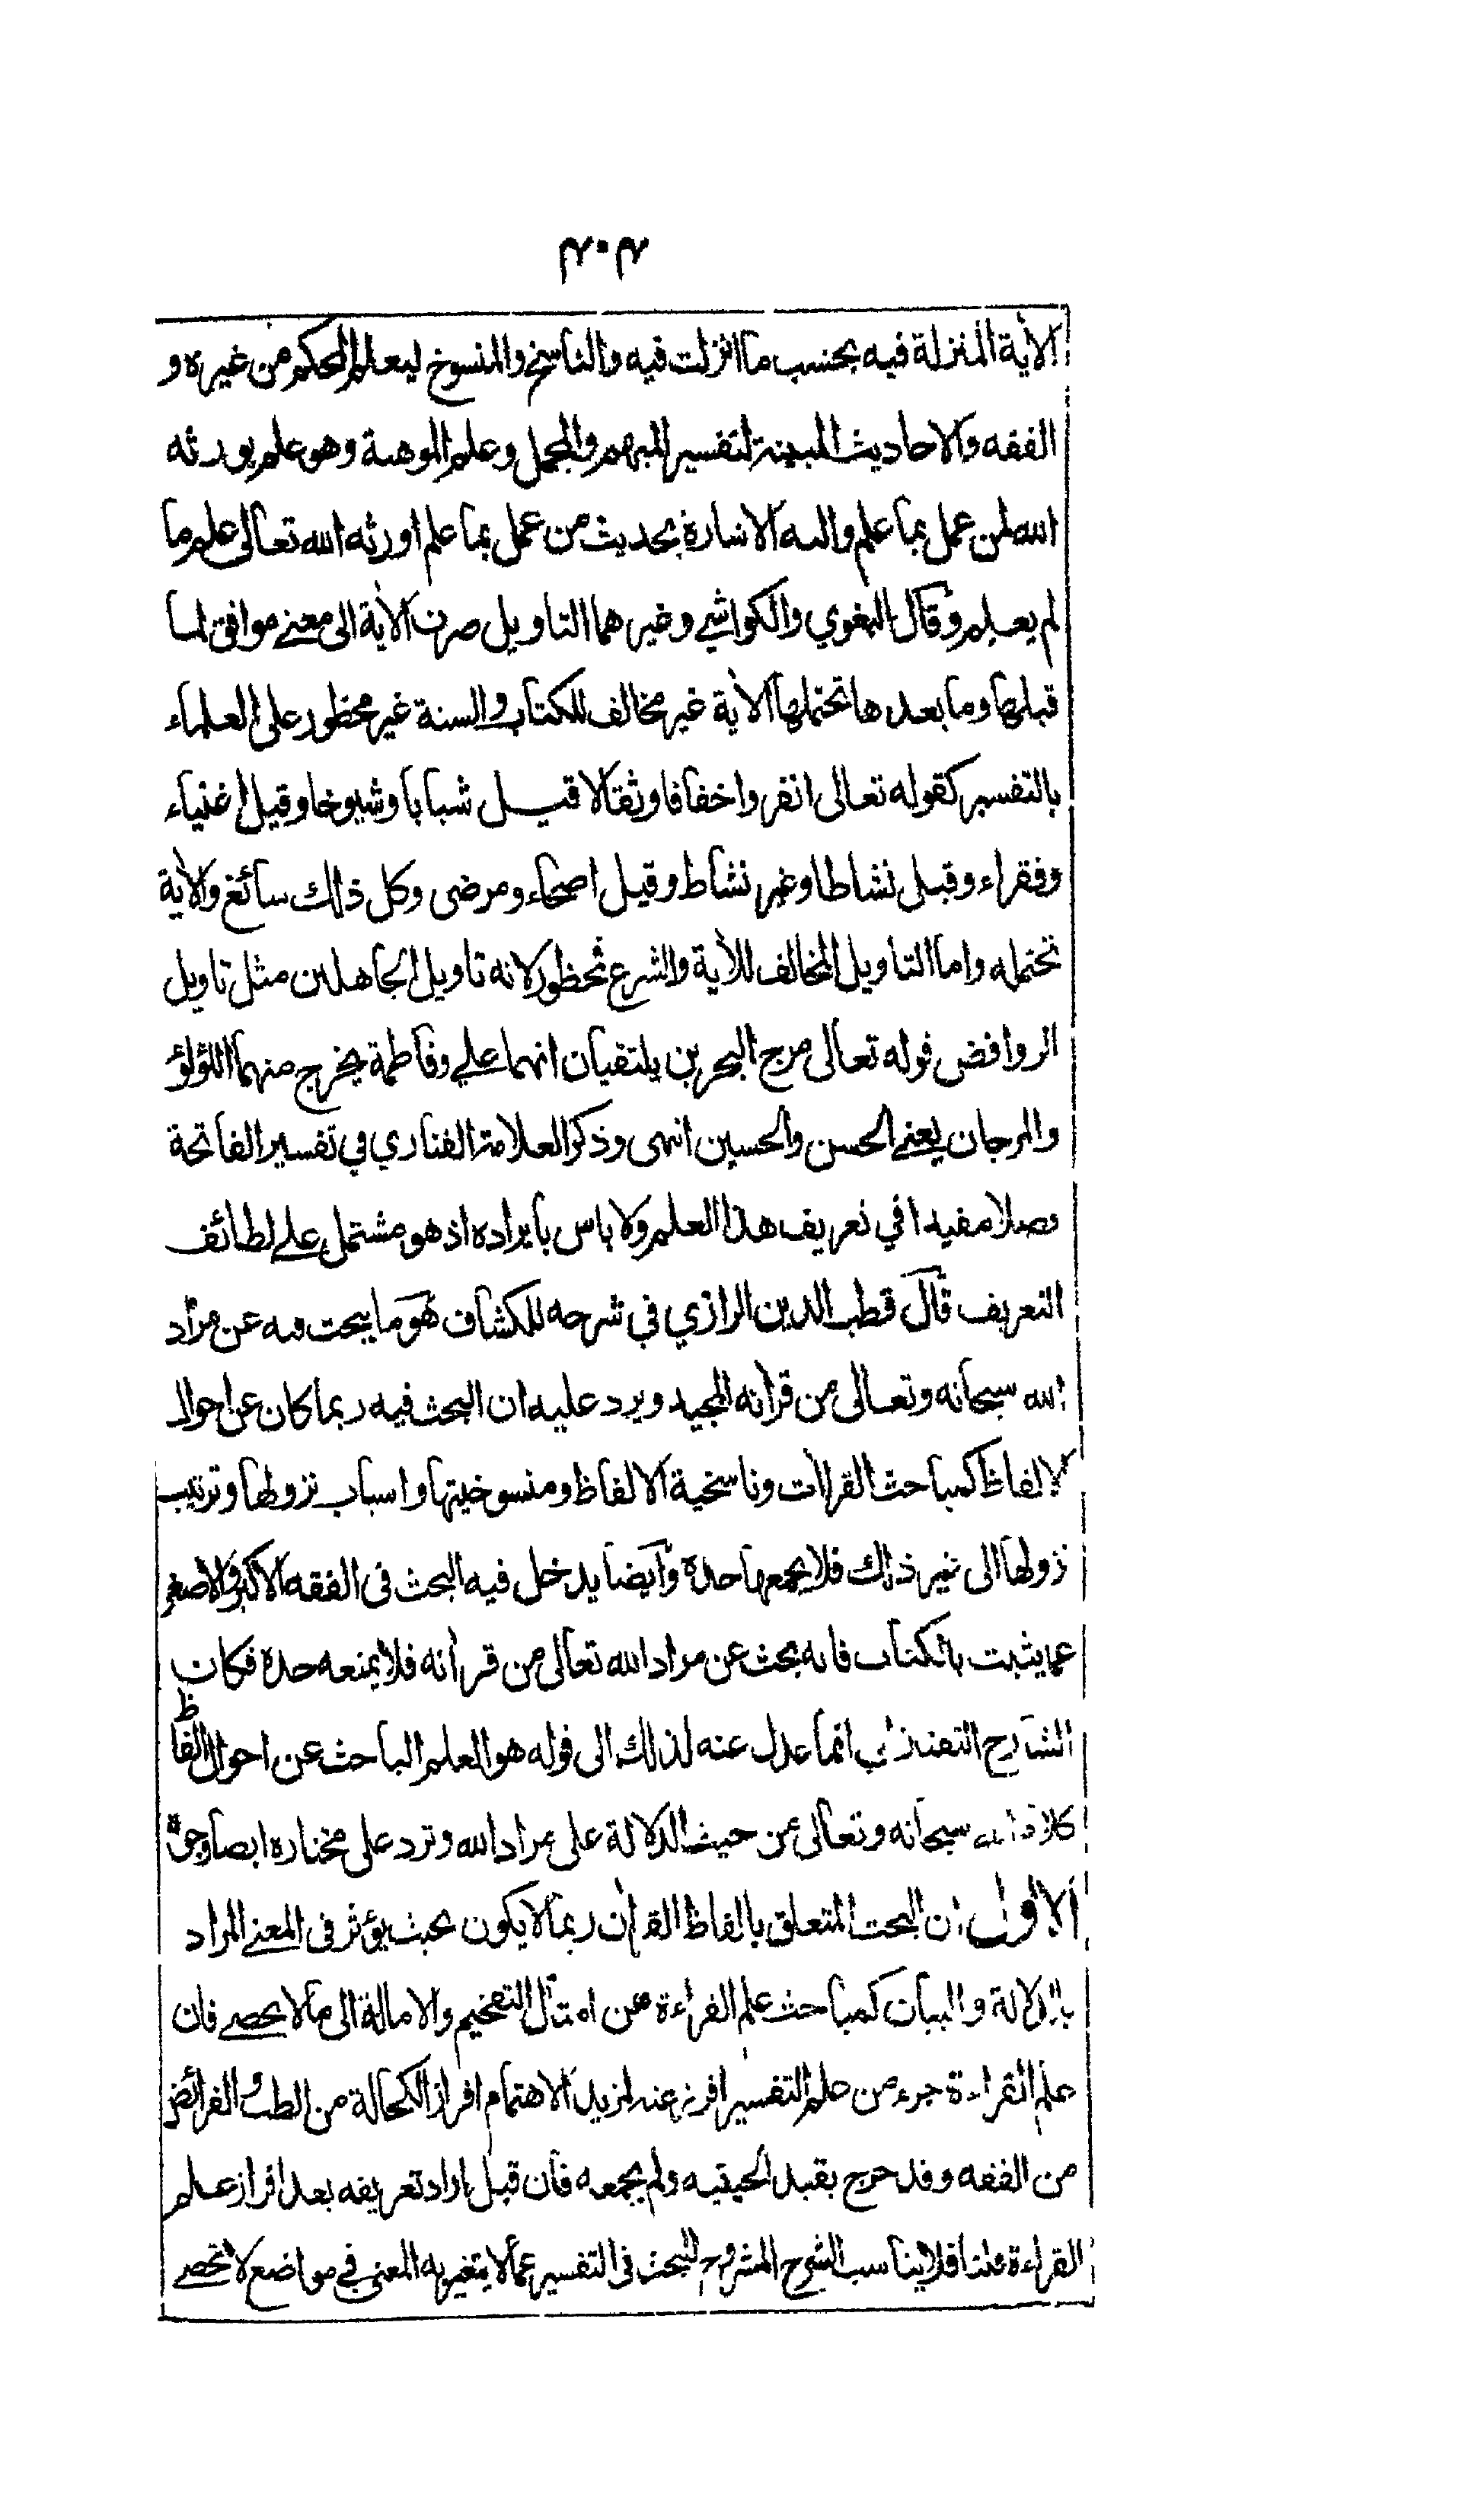 ٣٠٣
الاٰية المنزلة فيه بحسب ما انزلت فيه والناسخ والمنسوخ ليعلم المحكم من غيره و
الفقه والاحاديث المبينة لتفسير المبهم والمجمل وعلم الموهبة وهو علم يورثه
الله لمن عمل بما علم واليه الاشارة بحديث من عمل بما علم اورثه الله تعالى علم ما
لم يعلم وقال البغوي والكواشي وغيرهما التاويل صرف الاٰية الى معنى موافق لما
قبلها وما بعدها تحتملها الاٰية غير مخالف للكتاب والسنة غير محظور على العلماء
بالتفسير كقوله تعالى انفروا خفافا وثقالا قيل شبابا وشيوخا وقيل اغنياء
وفقراء وقيل نشاطا وغير نشاط وقيل اصحاء ومرضى وكل ذلك سائغ والاٰية
تحتمله واما التاويل المخالف للاٰية والشرع فمحظور لانه تاويل الجاهلين مثل تاويل
الروافض قوله تعالى مرج البحرين يلتقيان انهما علي وفاطمة يخرج منهما اللؤلؤ
والمرجان يعني الحسن والحسين انتهى وذكر العلامة الفناري في تفسير الفاتحة
فصلا مفيدا في تعريف هذا العلم ولا باس بايراده اذ هو مشتمل على لطائف
التعريف قال قطب الدين الرازي في شرحه للكشاف هو ما يبحث فيه عن مراد
الله سبحانه وتعالى من قراٰنه المجيد ويرد عليه ان البحث فيه ربما كان عن احوال
الالفاظ كمباحث القراٰات وناسخية الالفاظ ومنسوخيتها واسباب نزولها وترتيب
نزولها الى غير ذلك فلا يجمعها حده وايضا يدخل فيه البحث في الفقه الاكبر والاصغر
عما يثبت بالكتاب فانه بحث عن مراد الله تعالى من قراٰنه فلا يمنعه حده فكان
الشارح التفتازاني انما عدل عنه لذلك الى قوله هو العلم الباحث عن احوال الفاظ
كلام الله سبحانه وتعالى من حيث الدلالة على مراد الله وترد على مختاره ايضا وجوه
الاول ان البحث المتعلق بالفاظ القراٰن ربما لا يكون بحيث يؤثر في المعنى المراد
بالدلالة والبيان كمباحث علم القراءة عن امثال التفخيم والامالة الى ما لا يحصى فان
علم القراءة جزء من علم التفسير افرز عنه لمزيد الاهتمام افراز الكحالة من الطب والفرائض
من الفقه وقد خرج بقيد الحيثية ولم يجمعه فان قيل اراد تعريفه بعد افراز علم
القراءة قلنا فلا يناسب الشرح المشروح للبحث في التفسير عما لا يتغير به المعنى في مواضع لا تحصى